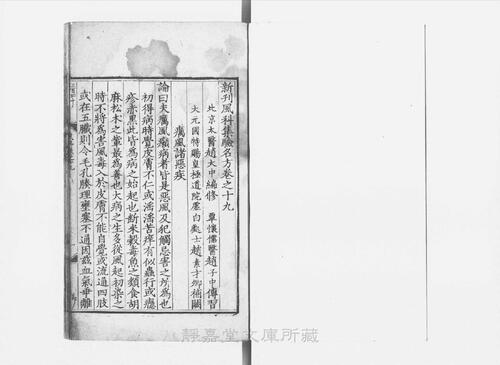 新刊風科集驗名方卷之十九
北京太醫趙大中編修
覃懷儒醫趙子中傳習
大元國特賜皇極道院虛白處士趙素才卿補闕
癘風諸惡疾
論曰夫癘風癩病者皆是惡風及犯觸忌害之所為也
初得病時覺皮膚不仁或淫淫苦痒有似蟲行或癮
疹赤黑此皆為病之始起也斷米穀毒魚之類食胡
麻松木之輩最為善也大病之生多從風起初染之
時不將為害風毒入於皮膚不能自覺或流通四肢
或在五臟則令毛孔腠理壅塞不通因茲血氣乖離
靜嘉堂文庫所藏